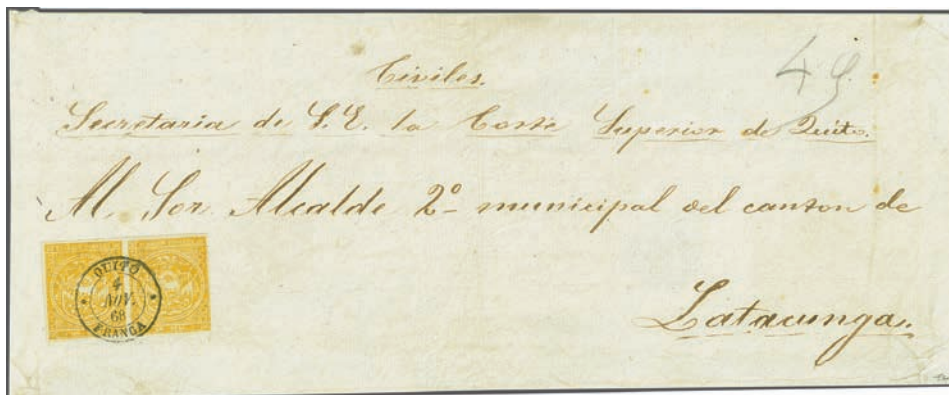 Civiles.
Secretaria de S.E. la Corte Superior de Quito.
Al Sor. Alcalde 2º municipal del canton de
Latacunga.
QUITO
4
NOV.
68
FRANCA